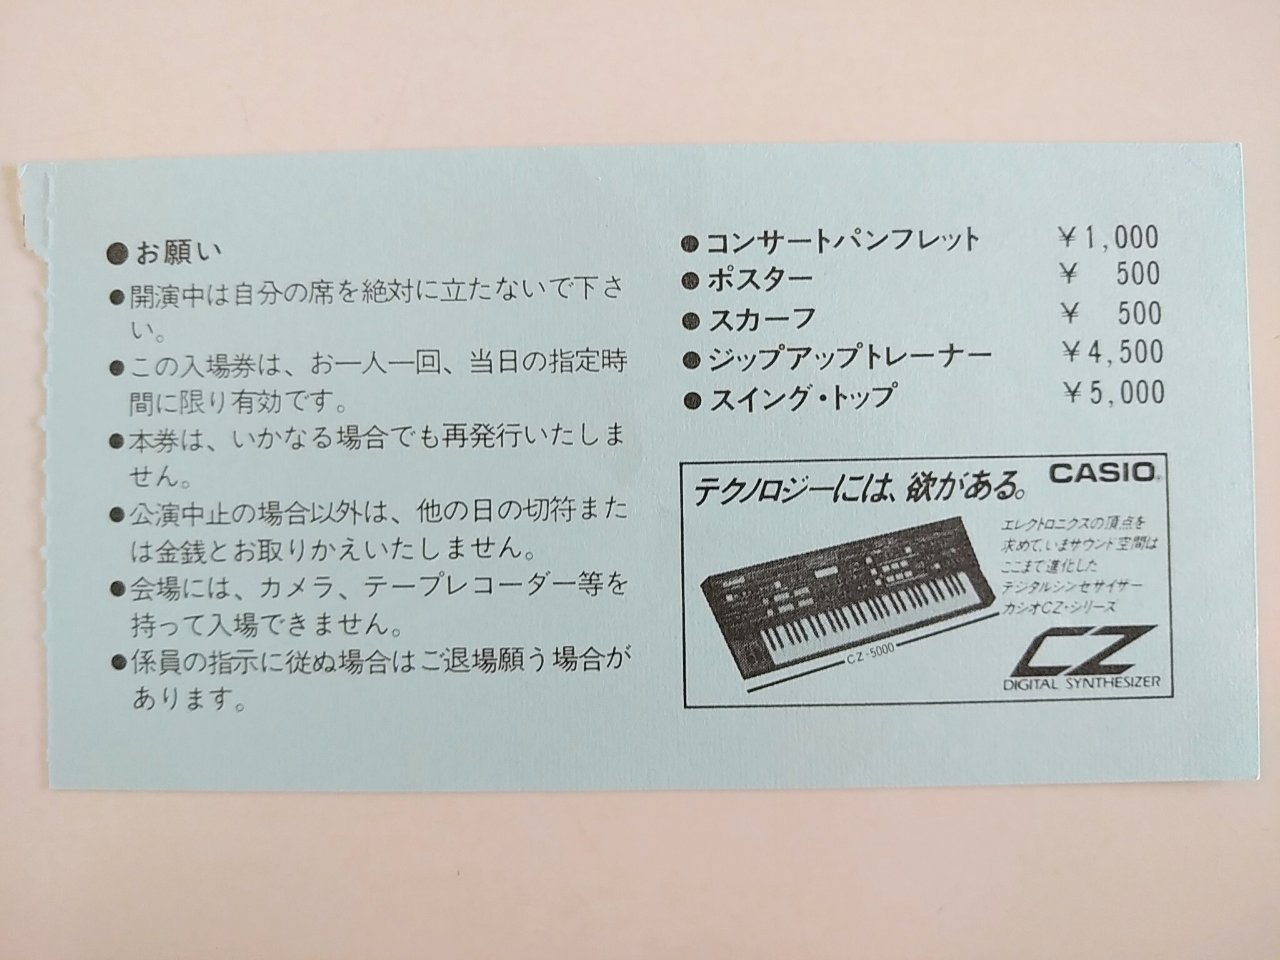 ●お願い
●開演中は自分の席を絶対に立たないで下さ
い。
●この入場券は、お一人一回、当日の指定時
間に限り有効です。
●本券は、いかなる場合でも再発行いたしま
せん。
●公演中止の場合以外は、他の日の切符また
は金銭とお取りかえいたしません。
●会場には、カメラ、テープレコーダー等を
持って入場できません。
●係員の指示に従ぬ場合はご退場願う場合が
あります。
●コンサートパンフレット ￥1,000
●ポスター ￥ 500
●スカーフ ￥ 500
●ジップアップトレーナー ￥4,500
●スイング・トップ ￥5,000
テクノロジーには、欲がある。 CASIO
エレクトロニクスの頂点を
求めて、いまサウンド空間は
ここまで進化した
デジタルシンセサイザー
カシオCZ・シリーズ
CZ-5000
CZ
DIGITAL SYNTHESIZER